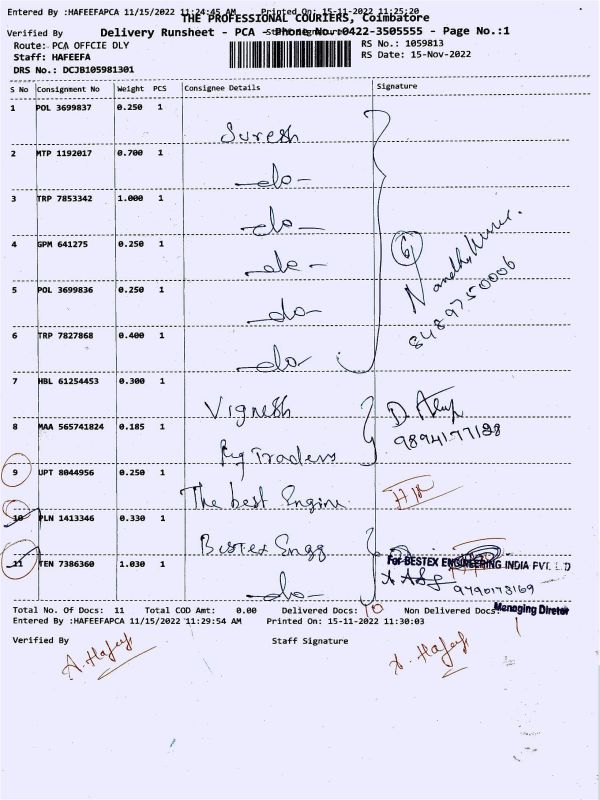 Entered By :HAFEEFAPCA 11/15/2022 11:24:45 AM Printed On: 15-11-2022 11:25:20
THE PROFESSIONAL COURIERS, Coimbatore
Verified By
Delivery Runsheet - PCA - Phone No.:0422-3505555 - Page No.:1
Route: PCA OFFCIE DLY RS No.: 1059813
Staff: HAFEEFA RS Date: 15-Nov-2022
DRS No.: DCJB105981301
S No Consignment No Weight PCS Consignee Details Signature
1 POL 3699837 0.250 1
Suresh
2 MTP 1192017 0.700 1
-do-
3 TRP 7853342 1.000 1
-do-
4 GPM 641275 0.250 1
-do-
6
Nandhakumar.
8489750006
5 POL 3699836 0.250 1
-do-
6 TRP 7827868 0.400 1
-do-
7 HBL 61254453 0.300 1
Vignesh
8 MAA 565741824 0.185 1
9894177188
Traders
9 UPT 8044956 0.250 1
The best Engine
10 PLN 1413346 0.330 1
Bestex Engg
11 TEN 7386360 1.030 1
For BESTEX ENGINEERING INDIA PVT. LTD
-do-
9790178169
Managing Diretor
Total No. Of Docs: 11 Total COD Amt: 0.00 Delivered Docs: 10 Non Delivered Docs: 1
Entered By :HAFEEFAPCA 11/15/2022 11:29:54 AM Printed On: 15-11-2022 11:30:03
Verified By Staff Signature
A. Hafeef A. Hafeef